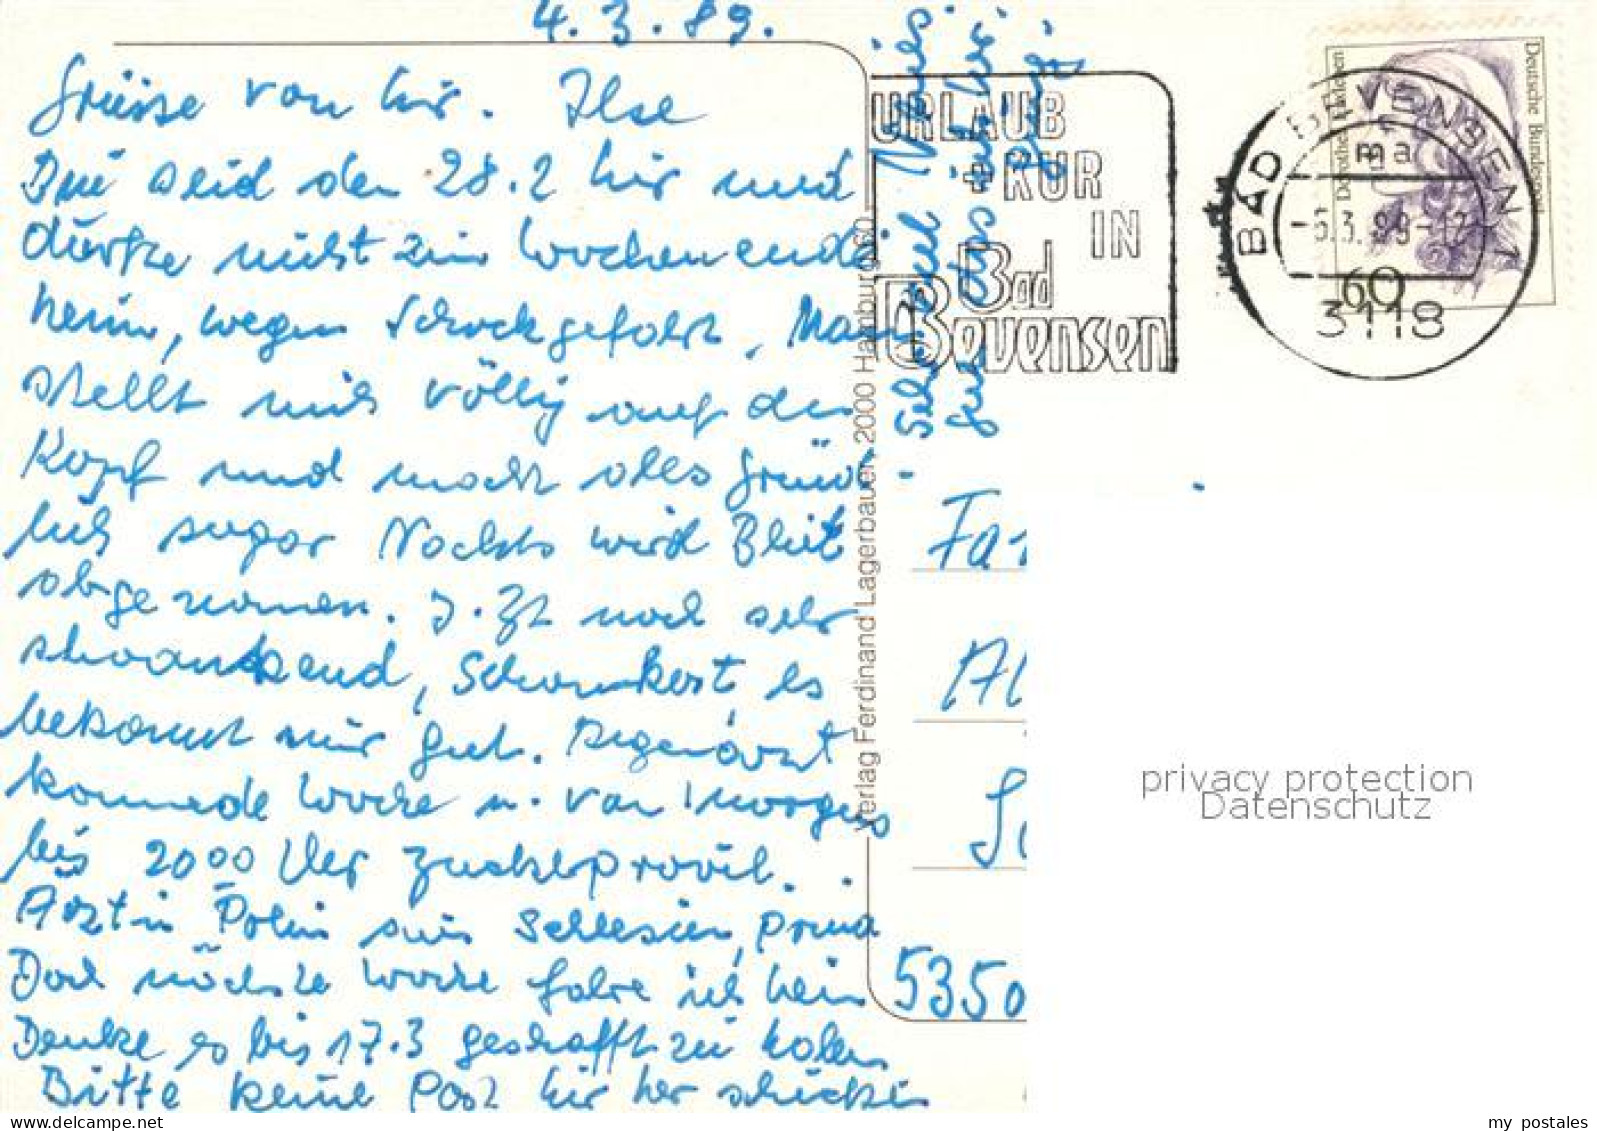 4.3.89.
Grüsse von hir. Ilse
Bin seid den 28.2 hir und
dürfte nicht zum Wochenende
heim, wegen Schockgefahr. Man
stellt mich völlig auf den
Kopf und macht alles gründ-
lich sogar Nachts wird Blut
abgenommen. Z. Zt noch sehr
schwankend, Schonkost, es
bekommt mir gut. Augenarzt
kommede Woche u. von morgens
bis 2000 Uhr Zuckerprovil.
Ärztin Polin aus Schlesien, prima
Doch nächste Woche fahre ich heim
Denke es bis 17.3 geschafft zu haben
Bitte keine Post hir her schicken
gut das ich hir
URLAUB
+KUR
IN
Bad
Bevensen
Verlag Ferdinand Lagerbauer, 2000 Hamburg 60
Deutsche Bundespost
60
BAD BEVENSEN 1
ma
3118
Fa
Al
5350
privacy protection
Datenschutz
www.ansichtskartenversand.com
my postales